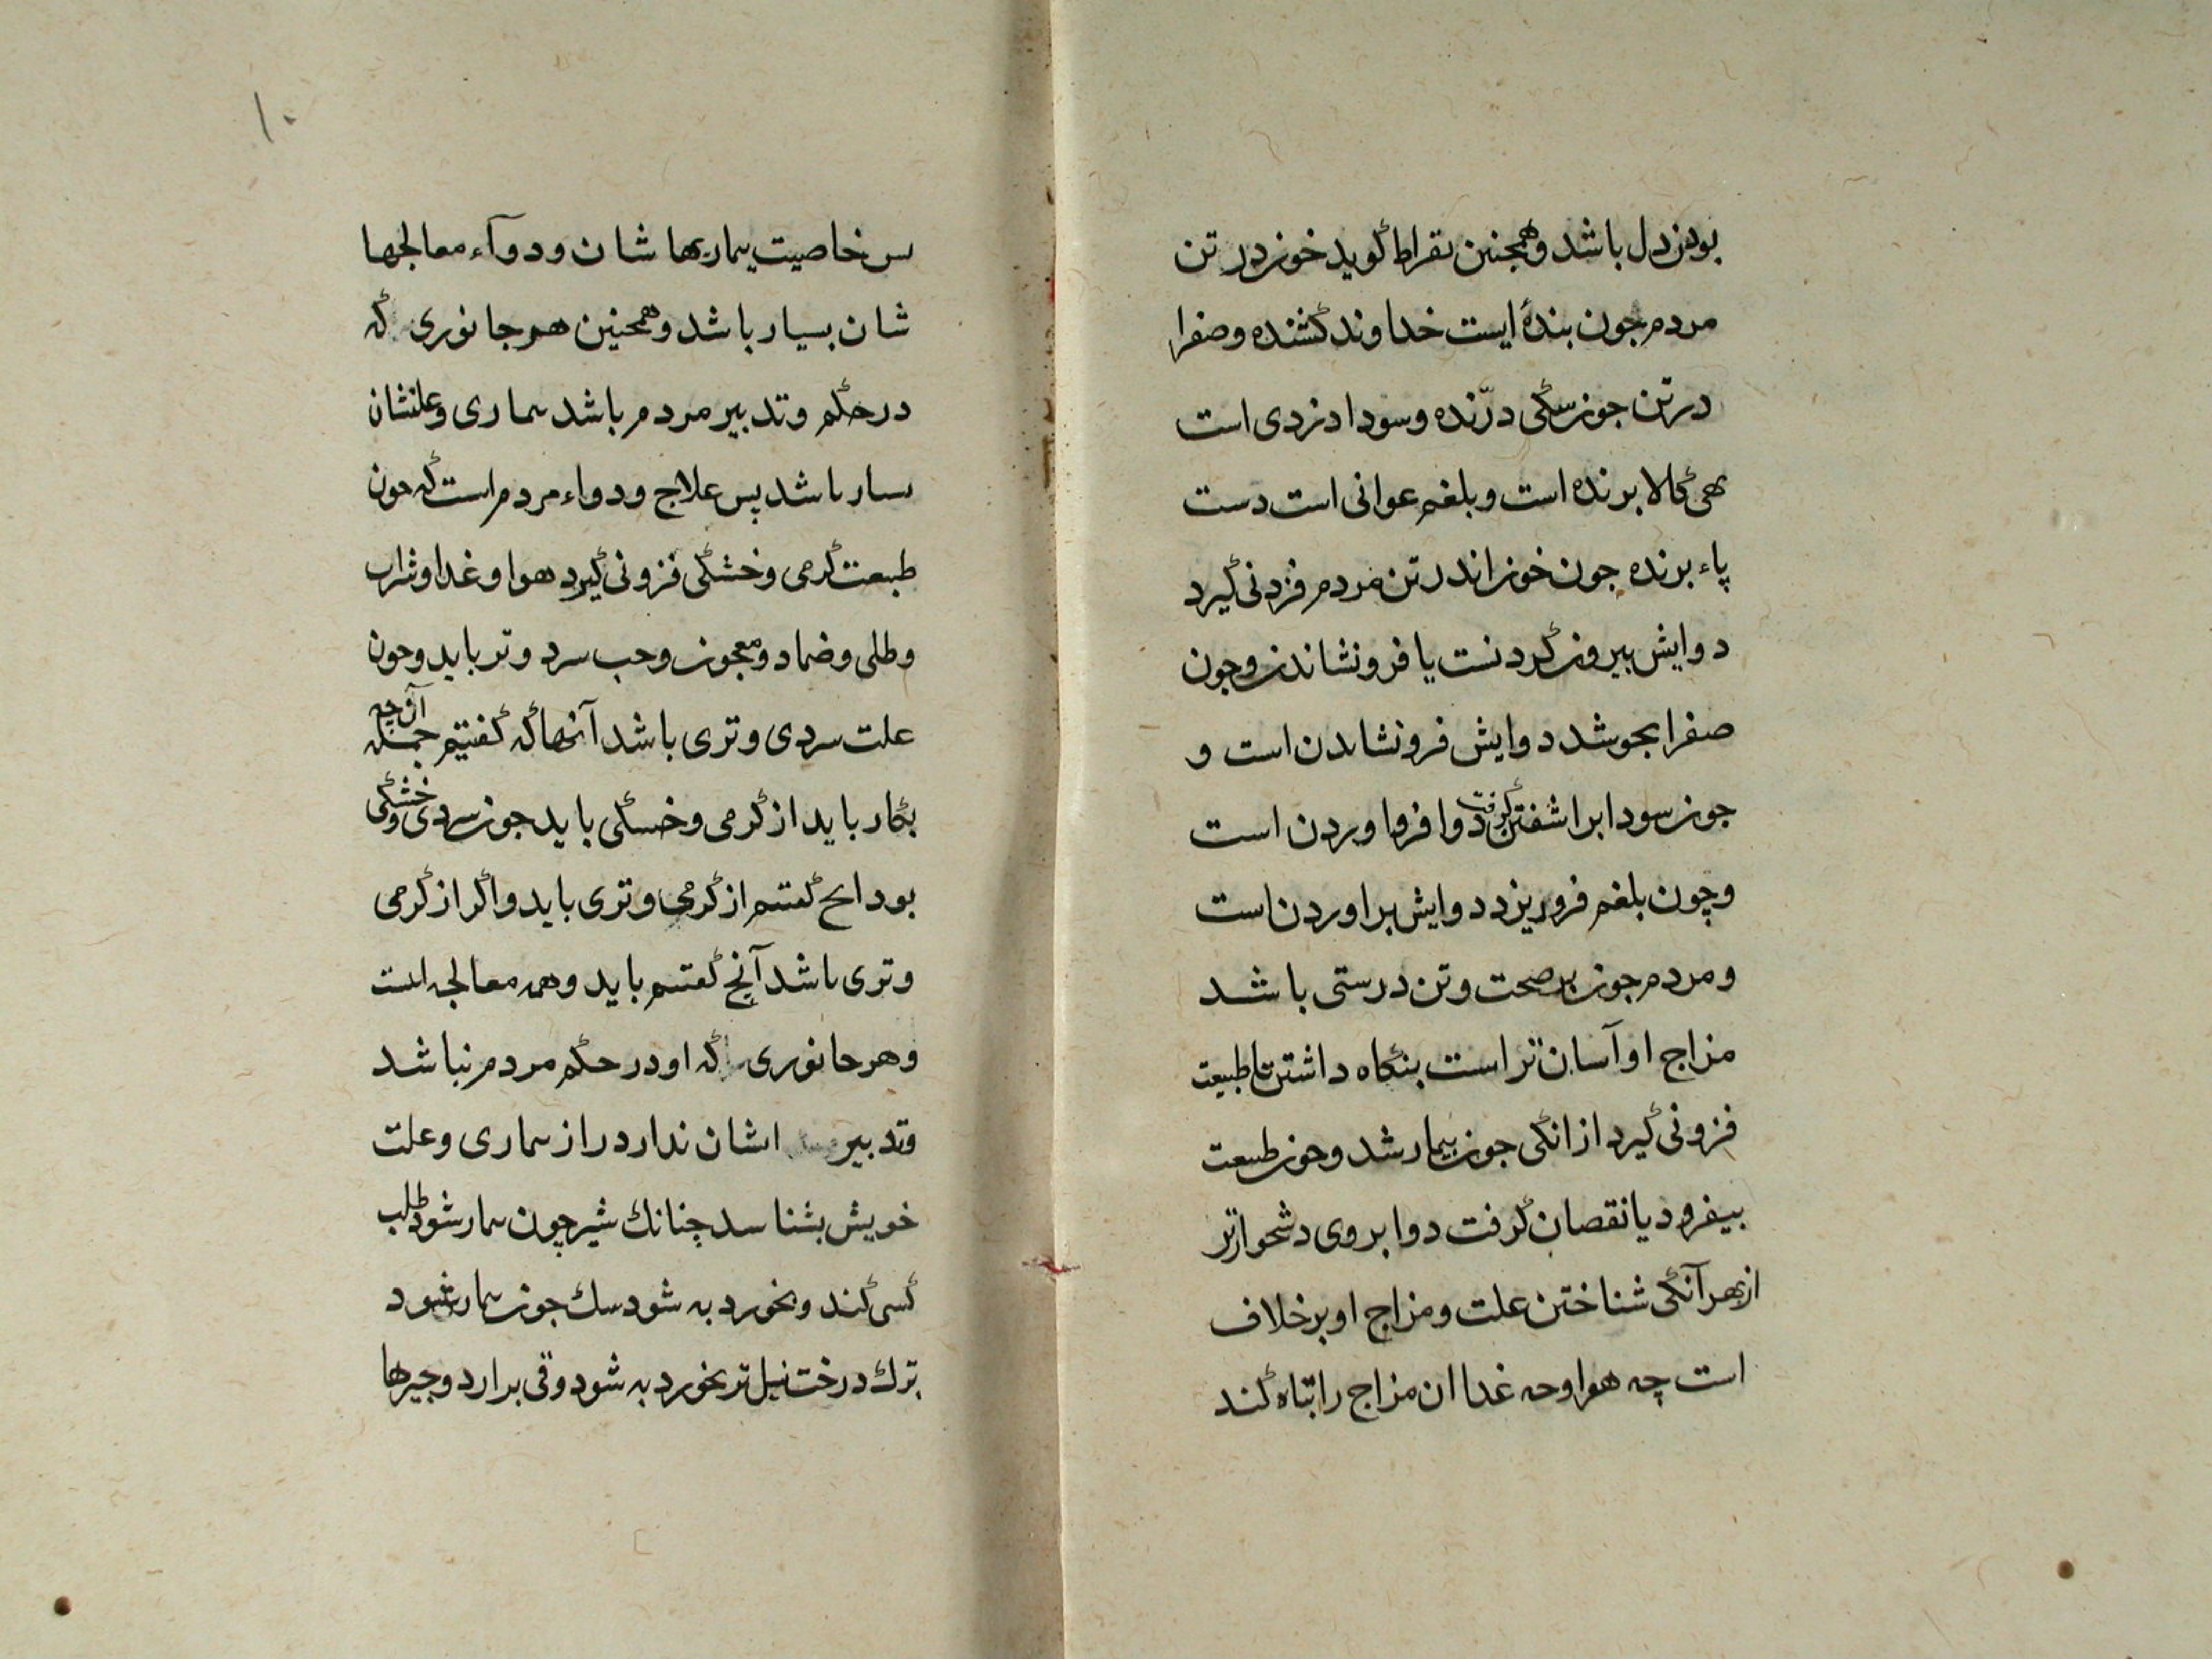 بودن دل باشد و همچنین بقراط گوید خون در تن
مردم چون بندهٔ ایست خداوند کشنده و صفرا
در تن چون سگی درّنده و سودا دزدی است
کالا برنده است و بلغم عوانی است دست
پاء برنده چون خون اندر تن مردم فزونی گیرد
دوایش بیرون کردنست یا فرونشاندن و چون
صفرا بجوشد دوایش فرونشاندن است و
جون سودا براشفتن گرفت دوا فروا وردن است
و چون بلغم فروریزد دوایش براوردن است
و مردم جون بر صحت و تن درستی باشد
مزاج او آسان تر است بنگاه داشتن تا طبیعت
فزونی گیرد ازانکی جون بیمار شد و جون طبیعت
بیفزود یا نقصان گرفت دوا بروی دشخوارتر
از بهر آنکی شناختن علت و مزاج او بر خلاف
است چه هوا و چه غدا ان مزاج را تباه کند
۱۰
بس خاصیت بیماریها شان و دوآء معالجها
شان بسیار باشد و همچنین هر جانوری که
در حکم و تدبیر مردم باشد بیماری و علتشان
بسیار باشد پس علاج و دواء مردم است که چون
طبیعت گرمی و خشکی فزونی گیرد هوا و غدا و شراب
و طلی و ضماد و معجون و حب سرد و تر باید و چون
علت سردی و تری باشد آنها که گفتیم آن چه جمله
بکار باید از گرمی و خشکی باید جون سردی و خشکی
بود انج گفتیم از گرمی و تری باید و اگر از گرمی
و تری باشد آنج گفتیم باید و همه معالجه است
و هر جانوری که او در حکم مردم نباشد
و تدبیر ایشان ندارد راز بیماری و علت
خویش بشناسد چنانك شیر چون بیمار شود طلب
کسی کند و بخورد به شود سك جون بیمار شود
برك درخت نیل تر بخورد به شود و قی برارد و چیزها